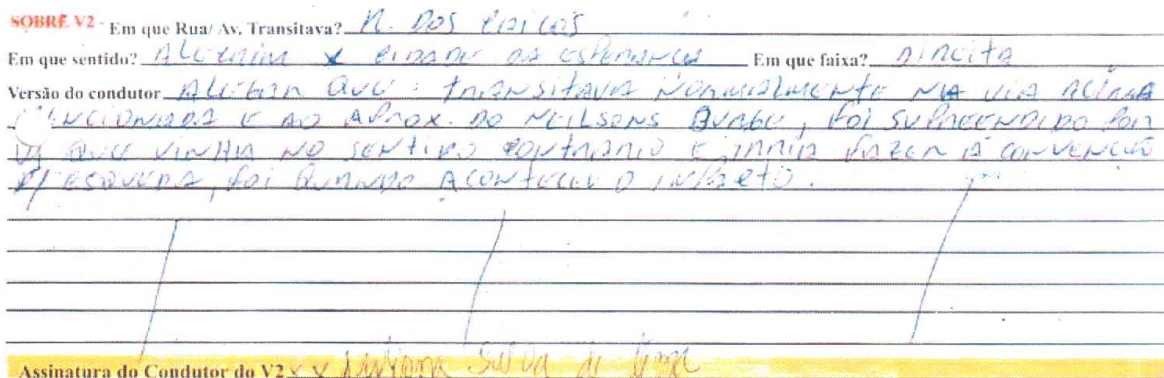 SOBRE V2 - Em que Rua/ Av. Transitava? R. DOS CAICOS
Em que sentido? ALECRIM X CIDADE DA ESPERANCA Em que faixa? DIREITA
Versão do condutor ALEGA QUE: TRANSITAVA NORMALMENTE NA VIA ACIMA
MENCIONADA E AO APROX. DO NEILSONS BURGU, FOI SUPREENDIDO POR
V1 QUE VINHA NO SENTIDO CONTRARIO E IRRIA FAZER A CONVENCÃO
P/ ESQUEDA, FOI QUANDO ACONTECEU O IMPACTO.
Assinatura do Condutor do V2 x x Silva de